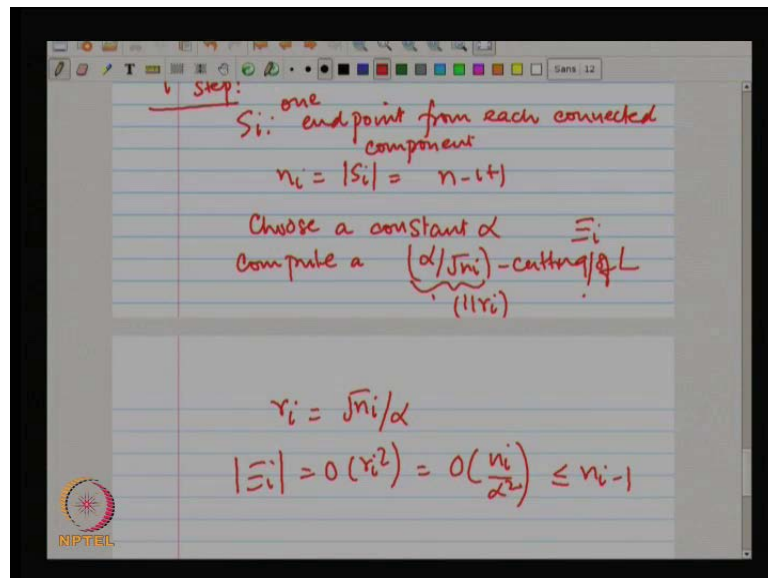 Sans 12
i step:
Si: one endpoint from each connected
component
ni = |Si| = n-i+1
Choose a constant α Ξi
compute a (α/√ni)-cutting of L
(1/ri)
ri = √ni/α
|Ξi| = O(ri²) = O(ni/α²) ≤ ni-1
NPTEL